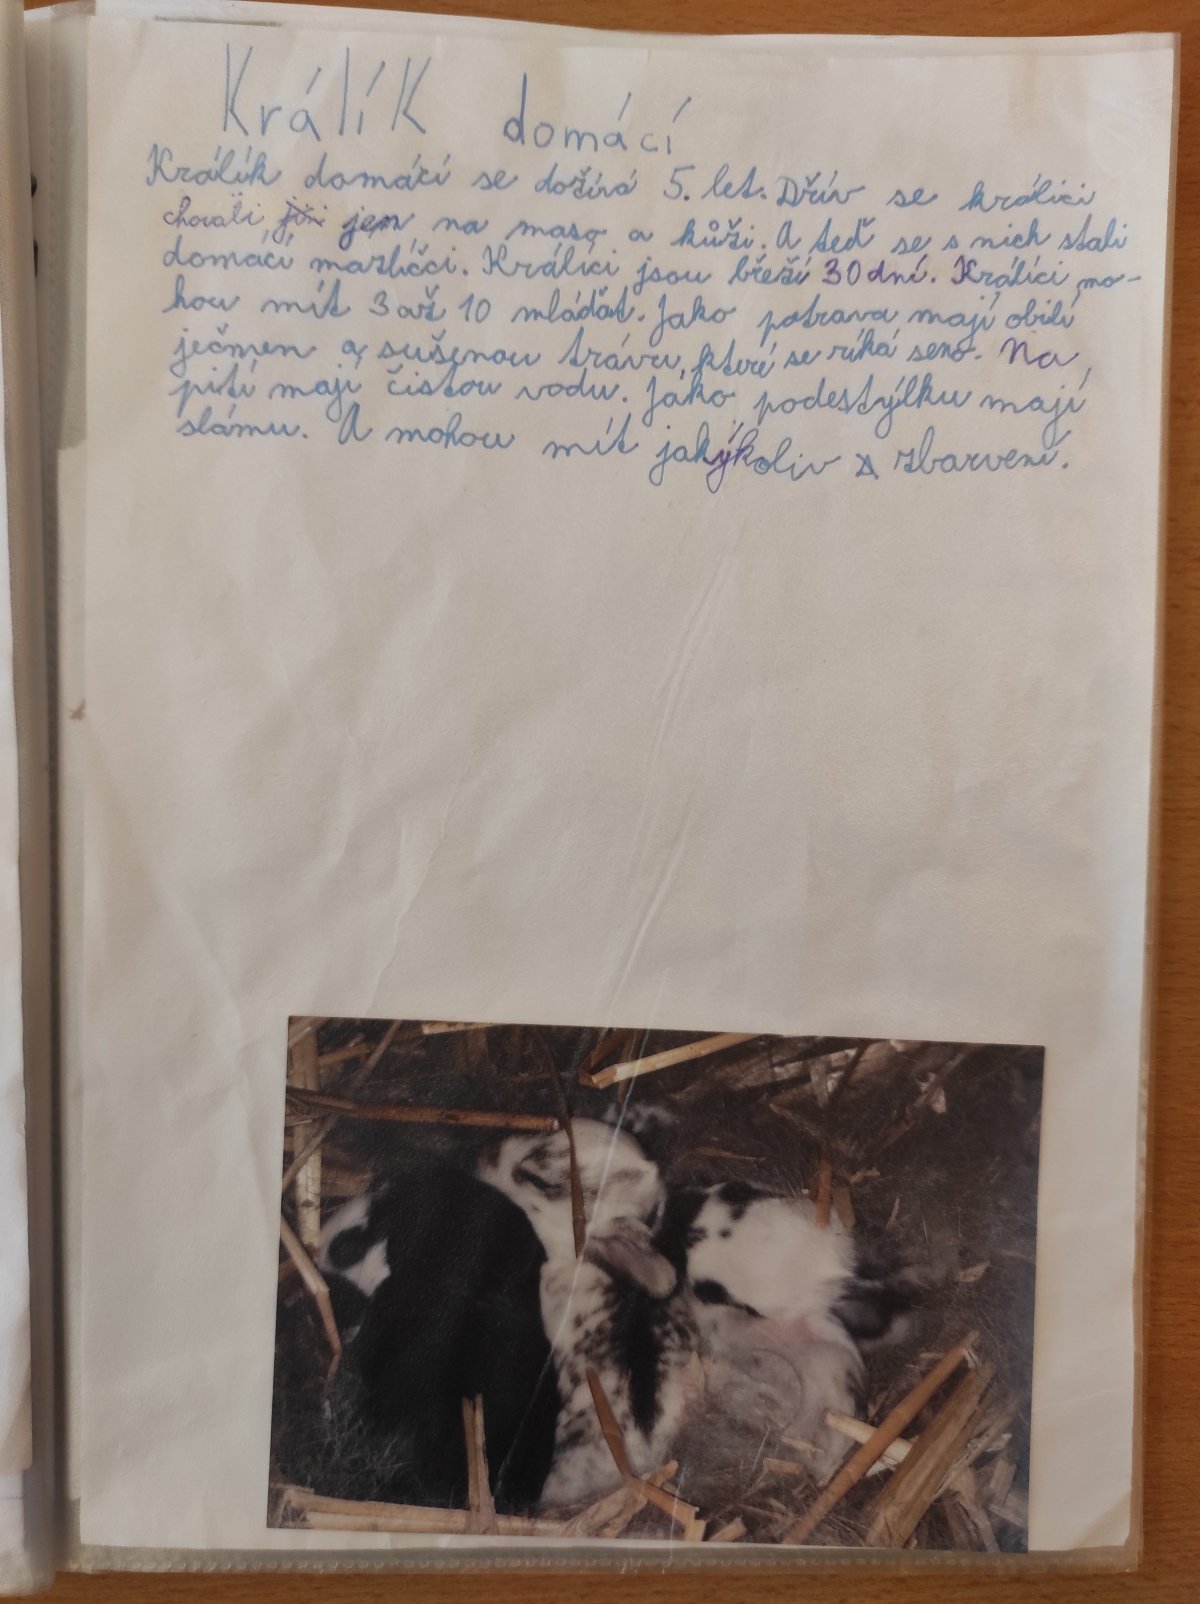 Králík domácí
Králík domácí se dožívá 5. let. Dřív se králici
chovali jen na maso a kůži. A teď se s nich stali
domácí mazlíčci. Králíci jsou březí 30 dní. Králíci mo-
hou mít 3 až 10 mláďat. Jako potrava mají obilí
ječmen a sušenou trávu, které se říká seno. Na
pití mají čistou vodu. Jáko podestýlku mají
slámu. A mohou mít jakýkoliv zbarvení.